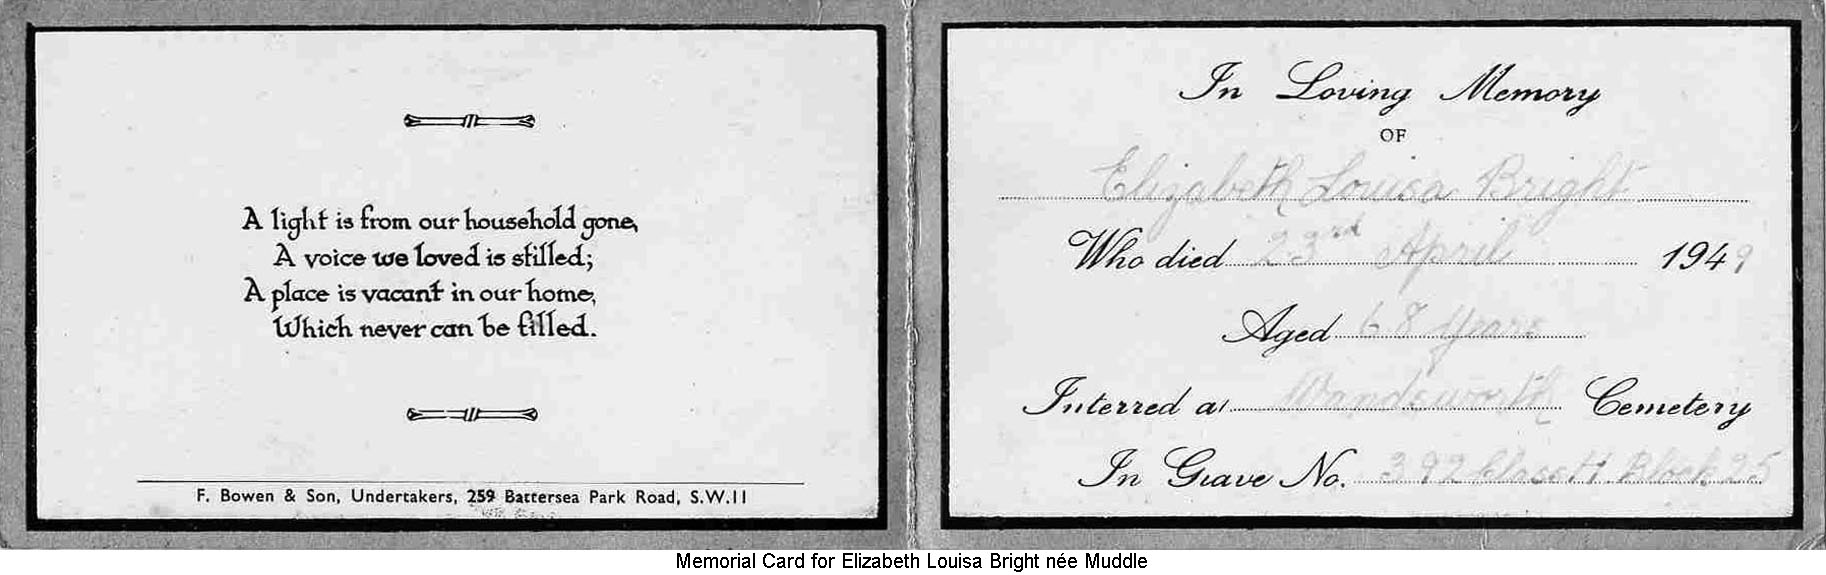 A light is from our household gone,
A voice we loved is stilled;
A place is vacant in our home,
Which never can be filled.
F. Bowen & Son, Undertakers, 259 Battersea Park Road, S.W.11
In Loving Memory
OF
Elizabeth Louisa Bright
Who died 23rd April 1949
Aged 68 years
Interred at Wandsworth Cemetery
In Grave No. 392 Class H Block 25
Memorial Card for Elizabeth Louisa Bright née Muddle